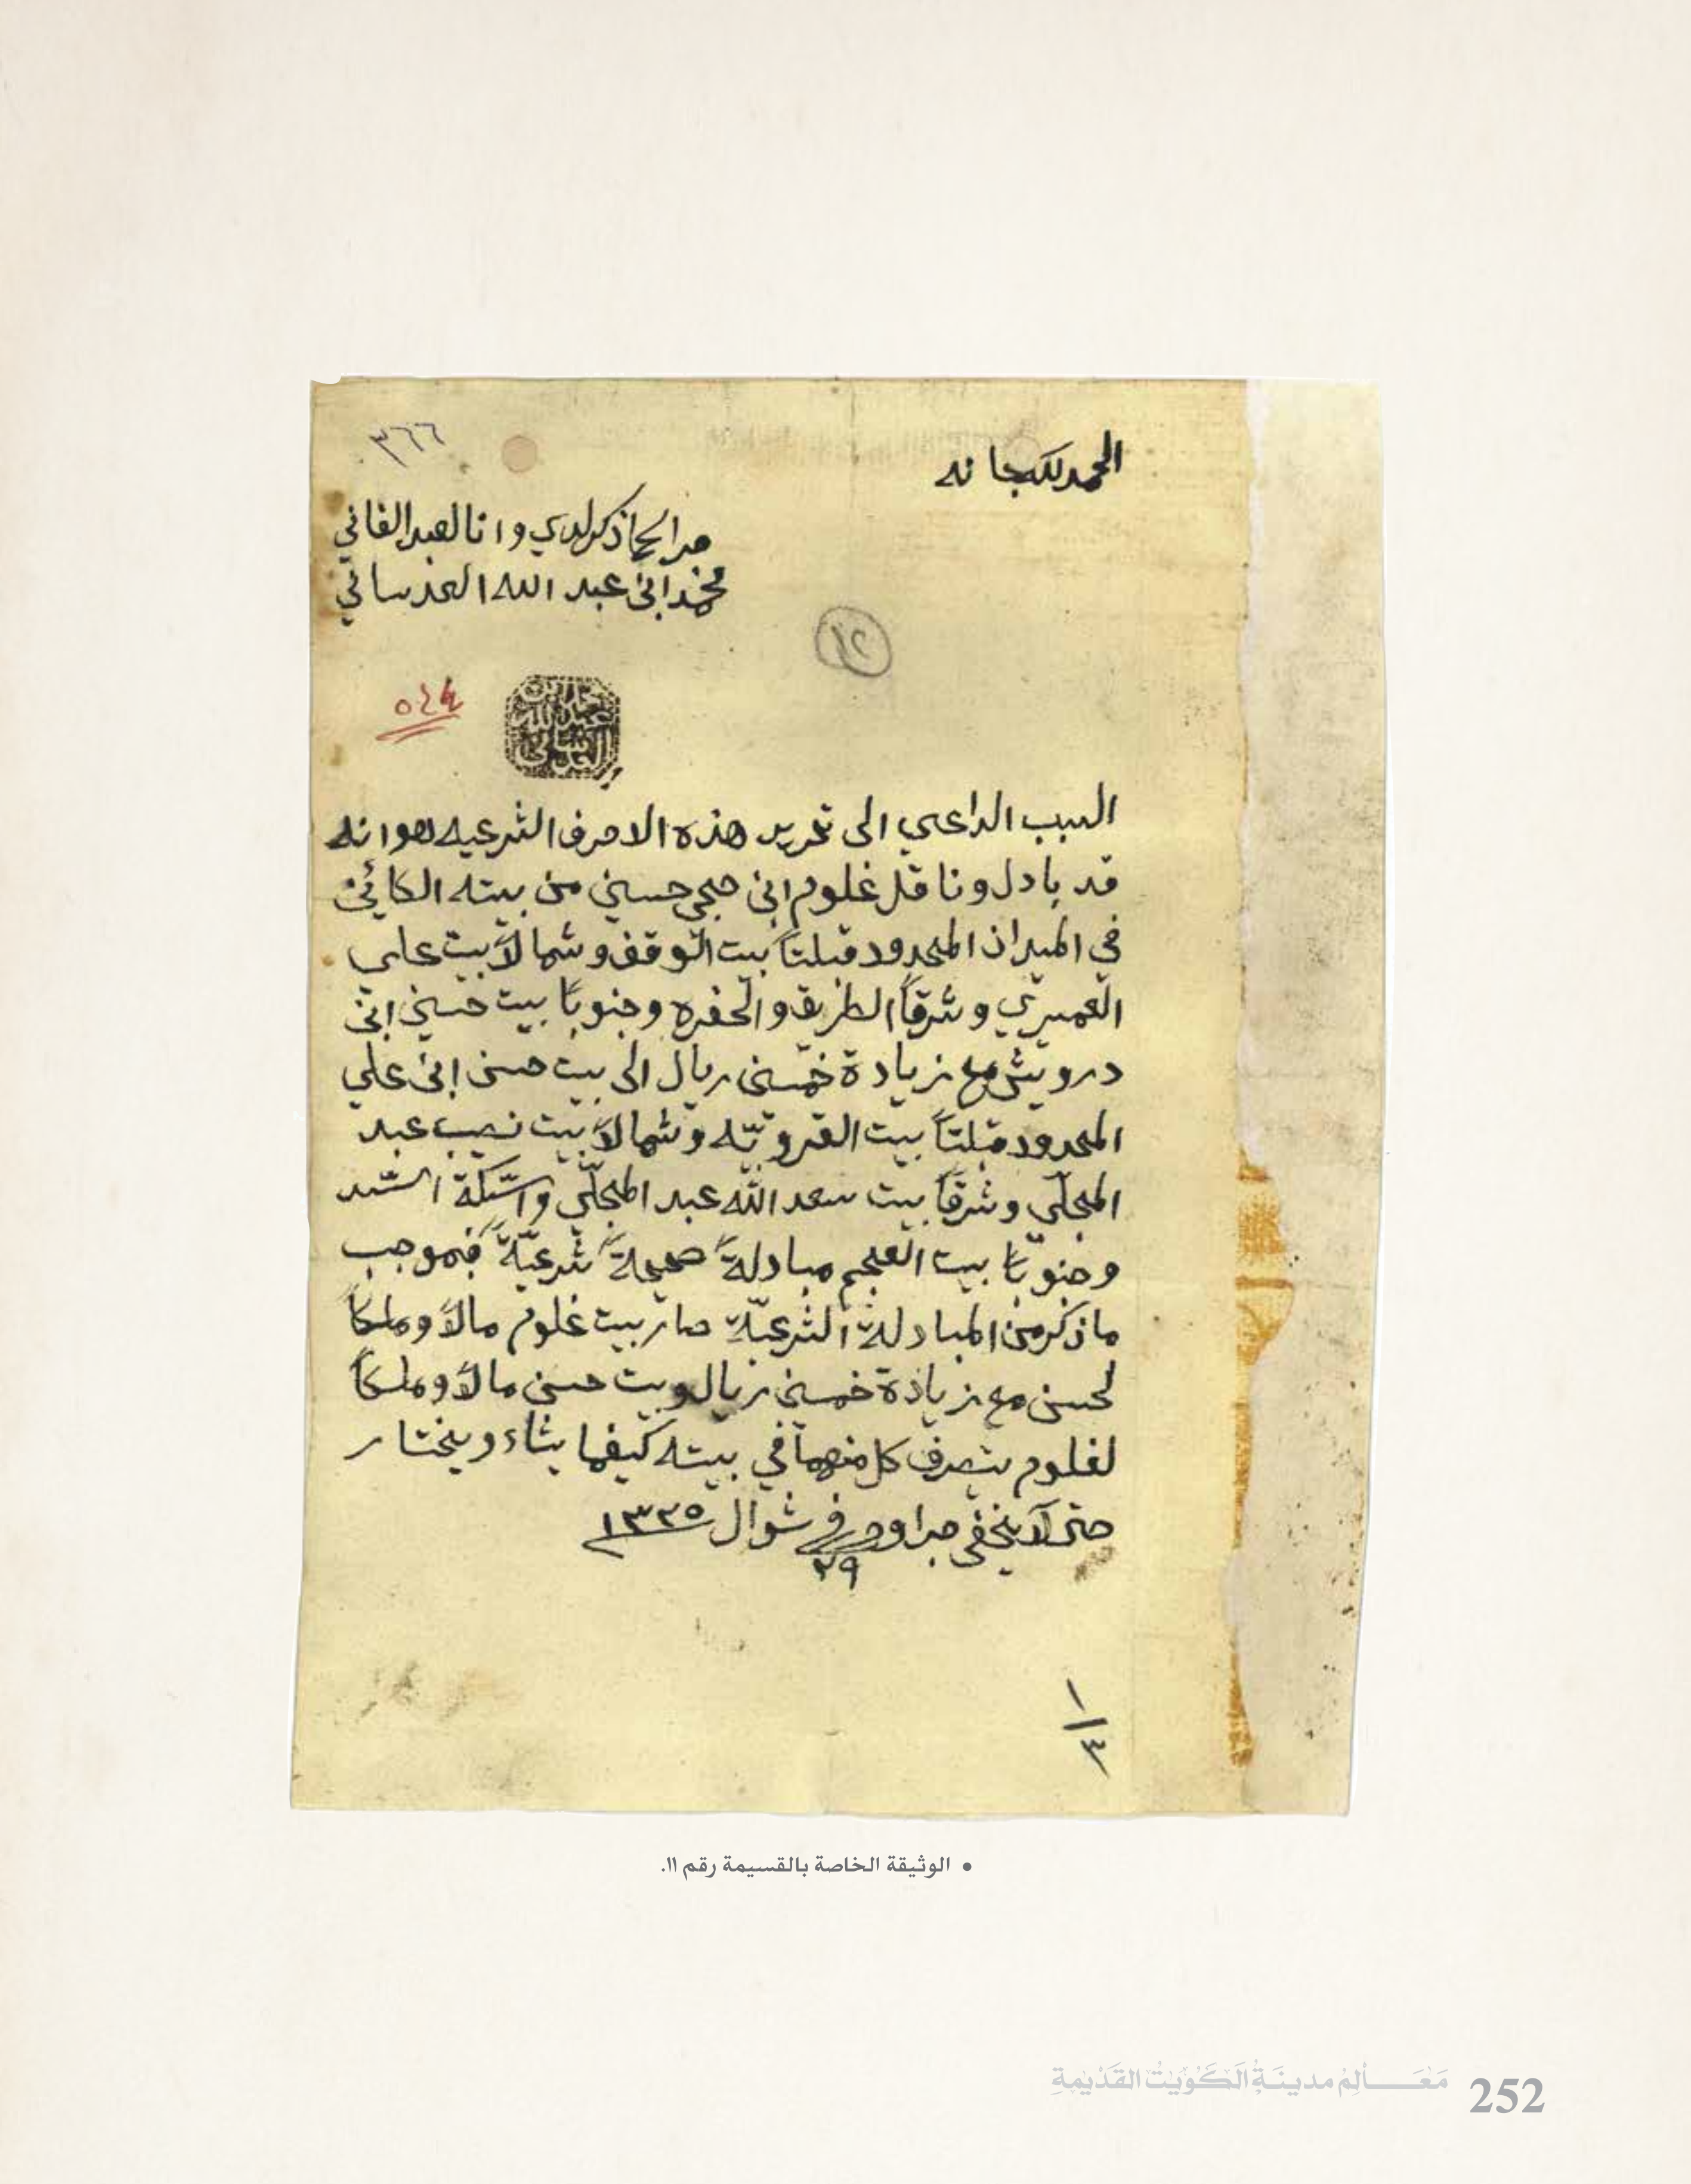 ٣٦٦
الحمد لله سبحانه
جرا كما ذكر لدي وانا العبد الفاني
محمد ابن عبد الله العدساني
١٢
٥٤٤
محمد بن
عبد الله
العدساني
السبب الداعي الى تحرير هذه الاحرف الشرعيه هو انه
قد بادل وناقل غلوم ابن حجي حسين من بيته الكائن
في الميدان المحدود قبلتاً بيت الوقف وشمالاً بيت علي
العميري وشرقاً الطريق والحفره وجنوباً بيت حسين ابن
درويش مع زيادة خمسين ريال الى بيت حسن ابن علي
المحدود قبلتاً بيت القرويّه وشمالاً بيت نصيب عبد
المجلّي وشرقاً بيت سعد الله عبد المجلّي والسّكة السّد
وجنوباً بيت العجم مبادلةً صحيحةً شرعيّةً فبموجب
ما ذكر من المبادلة الشرعيّة صار بيت غلوم مالاً وملكاً
لحسن مع زيادة خمسين ريال وبيت حسن مالاً وملكاً
لغلوم يتصرف كل منهما في بيته كيفما يشاء ويختار
حتى لا يخفى جرا وحرر في ٢٩ شوال ١٣٢٥
١/٣
• الوثيقة الخاصة بالقسيمة رقم ١١.
مَعَـــالِمُ مدينَةِ الكُوَيْتِ القَدْيمَةِ 252